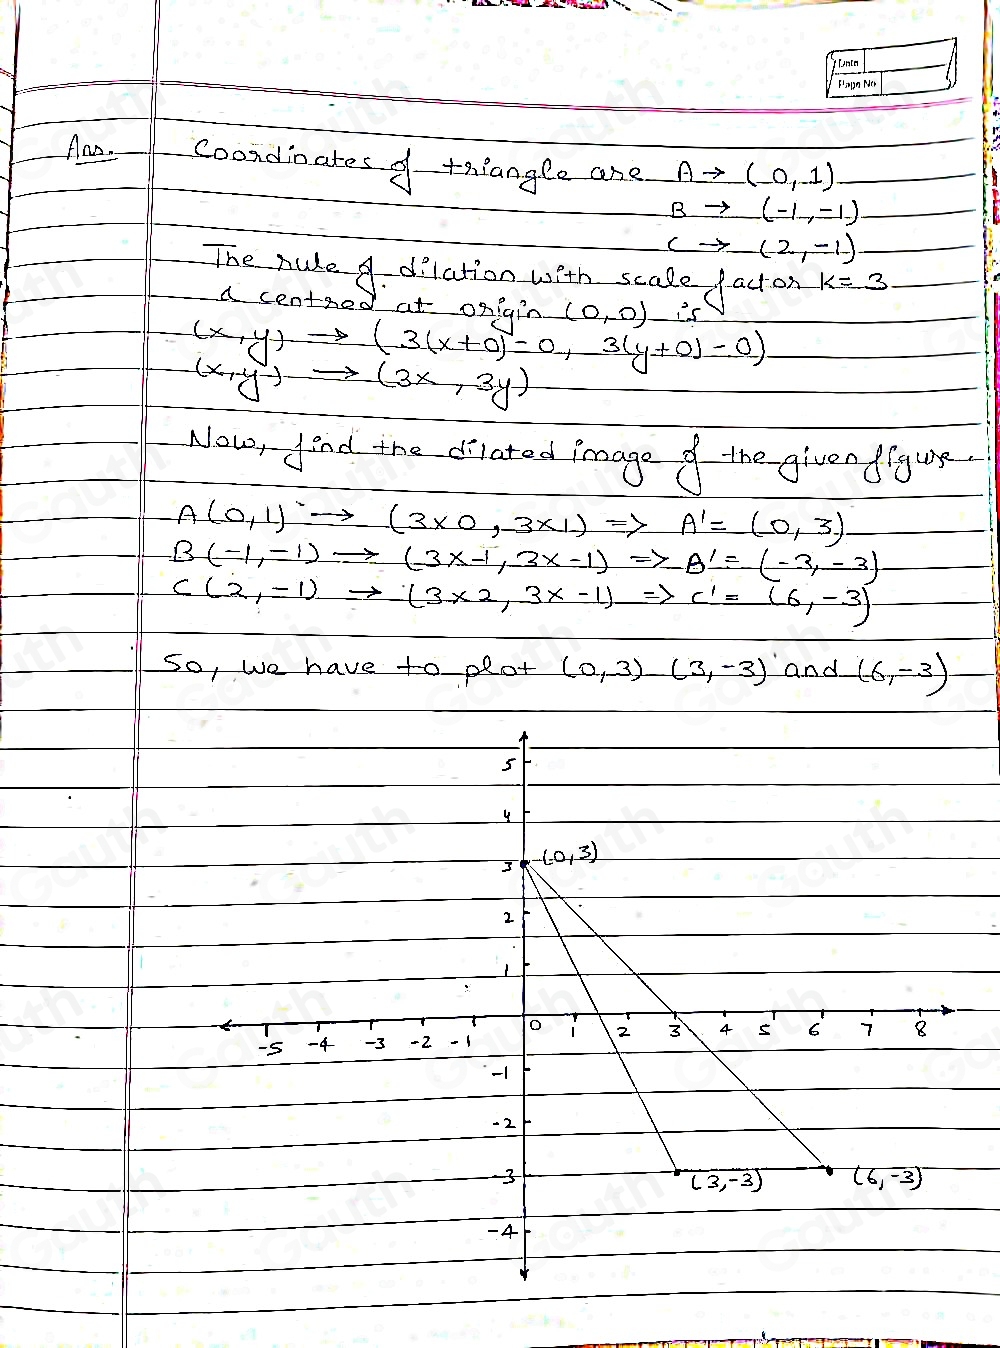 Date
Page No
Ans. Coordinates of triangle are A → (0,1)
B → (-1,-1)
C → (2,-1)
The rule of dilation with scale factor k = 3
& centred at origin (0,0) is
(x,y) → (3(x+0)-0, 3(y+0)-0)
(x,y) → (3x, 3y)
Now, find the dilated image of the given figure.
A(0,1) → (3×0, 3×1) => A' = (0,3)
B(-1,-1) → (3×-1, 3×-1) => B' = (-3,-3)
C(2,-1) → (3×2, 3×-1) => C' = (6,-3)
So, we have to plot (0,3) (3,-3) and (6,-3)
5
4
3 (0,3)
2
1
-5 -4 -3 -2 -1 0 1 2 3 4 5 6 7 8
-1
-2
-3 (3,-3) (6,-3)
-4